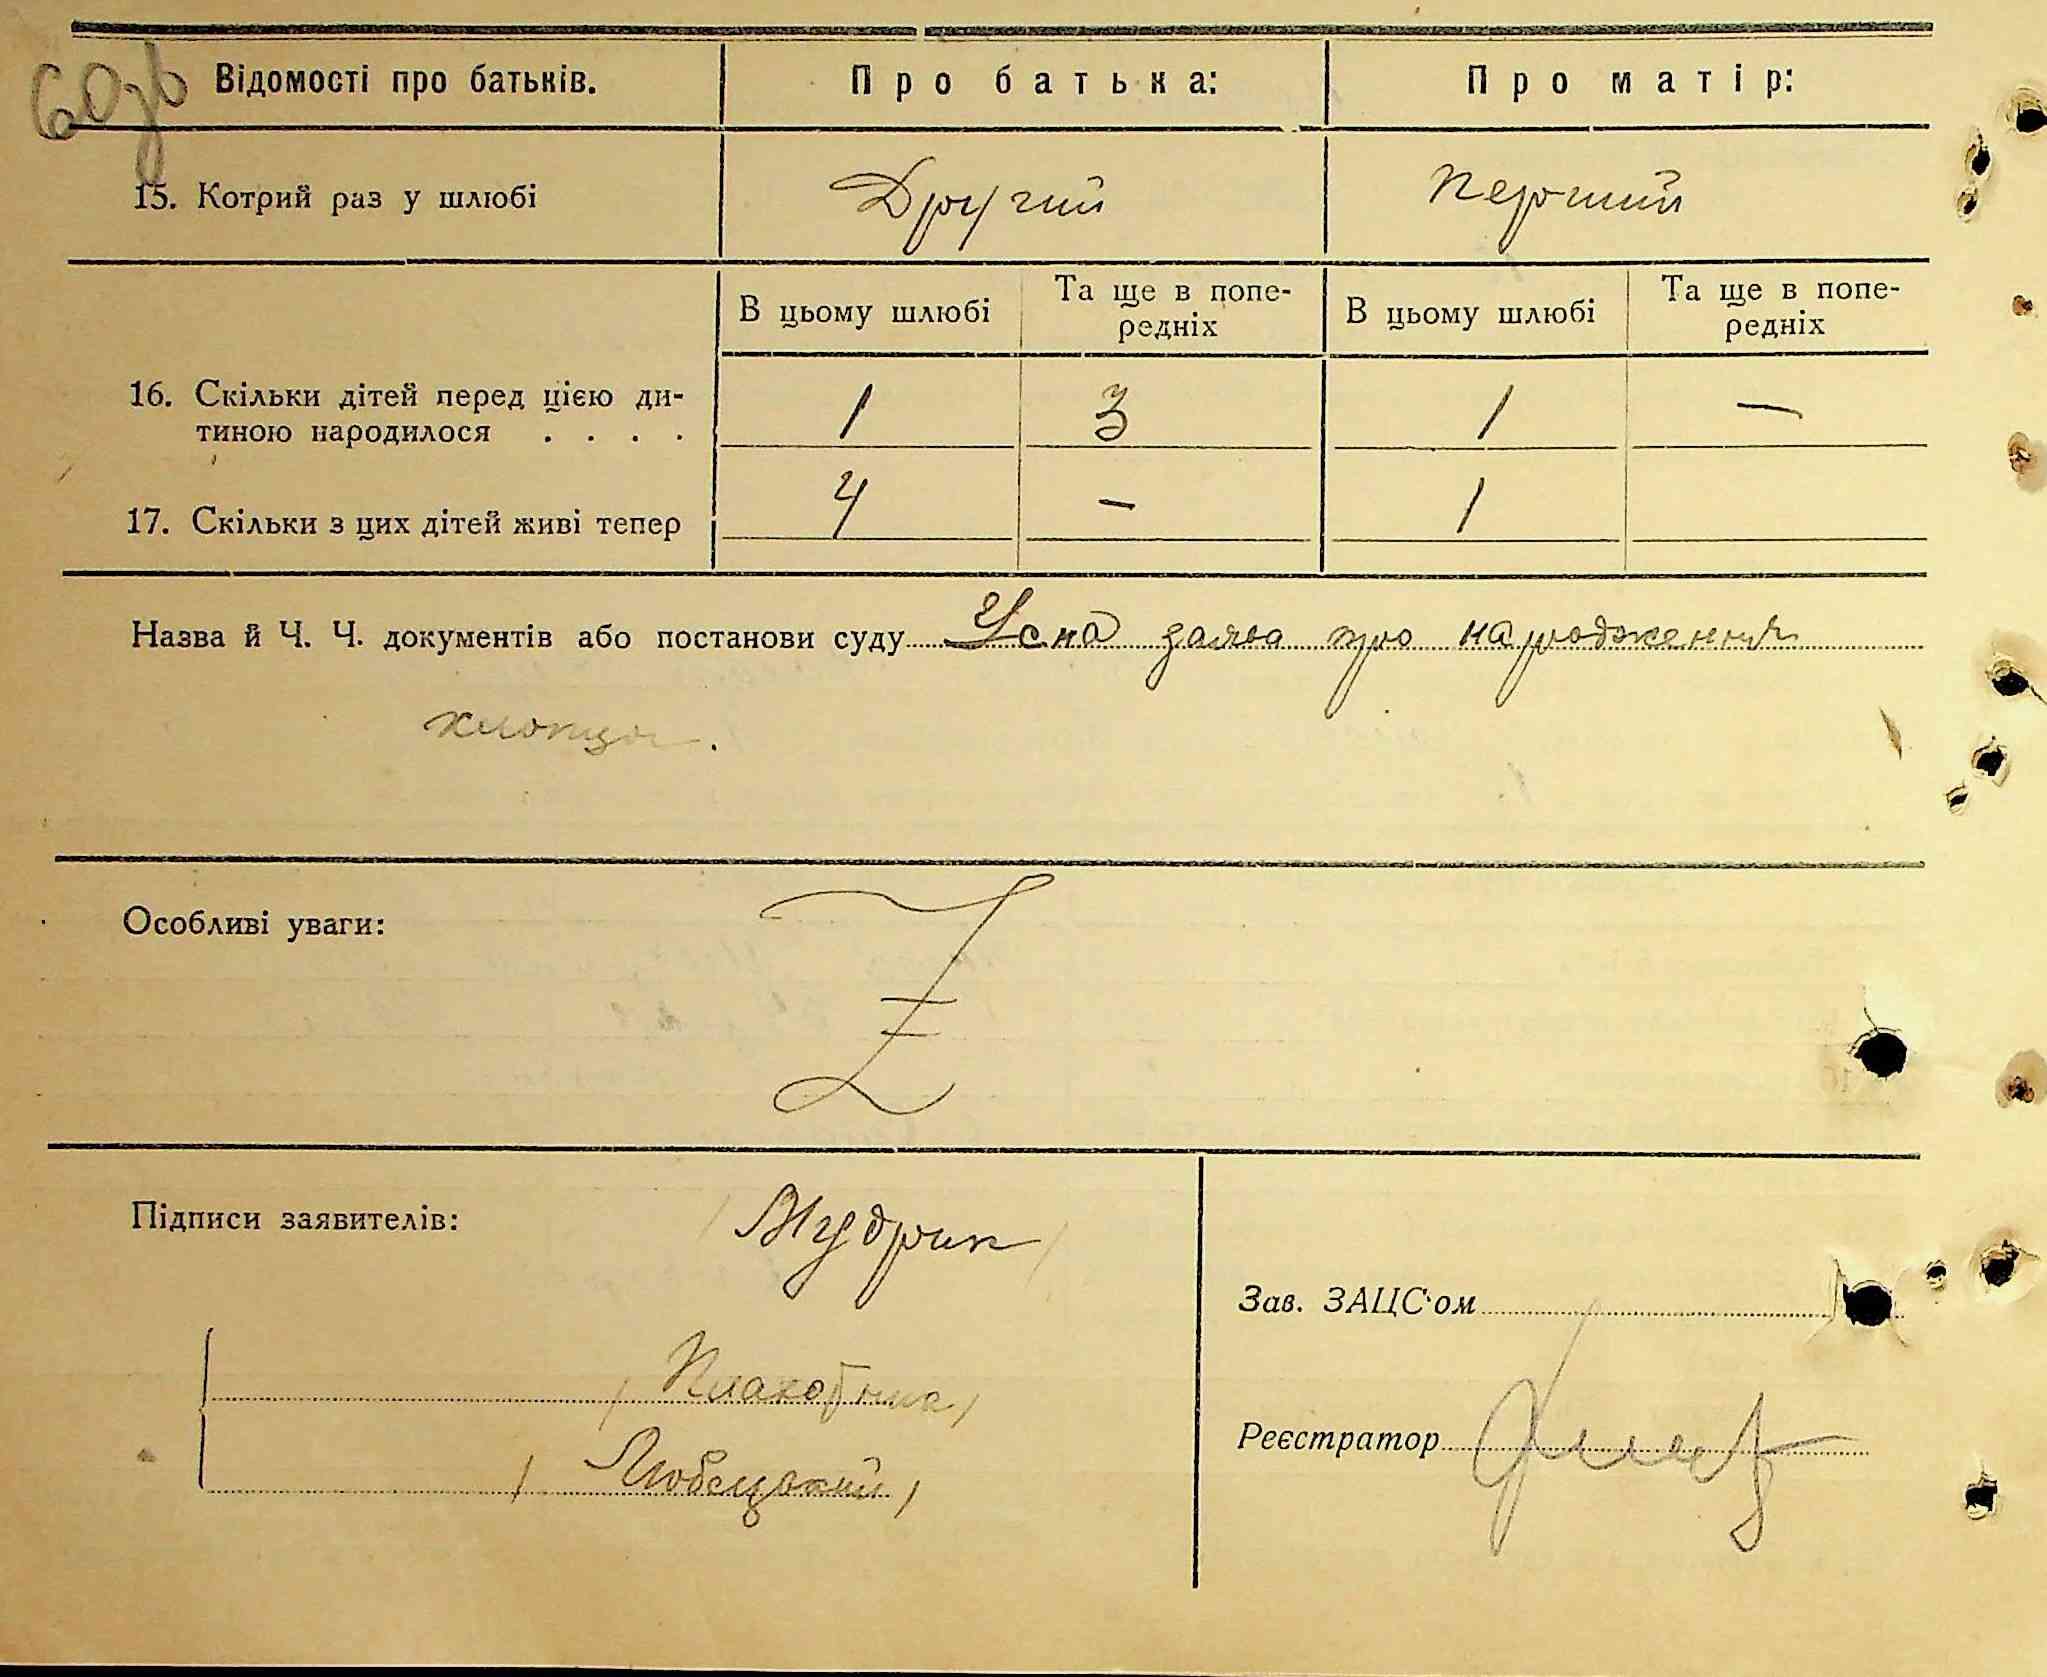 60зв
Відомості про батьків.
Про батька:
Про матір:
15. Котрий раз у шлюбі
Другий
Перший
В цьому шлюбі
Та ще в попе-
редніх
В цьому шлюбі
Та ще в попе-
редніх
16. Скільки дітей перед цією ди-
тиною народилося . . . .
1
3
1
—
17. Скільки з цих дітей живі тепер
4
—
1
Назва й Ч. Ч. документів або постанови суду Усна заява про народження
хлопця.
Особливі уваги:
Z
Підписи заявителів:
/ Мудрик /
Зав. ЗАЦС'ом
/ Любецький /
Реєстратор